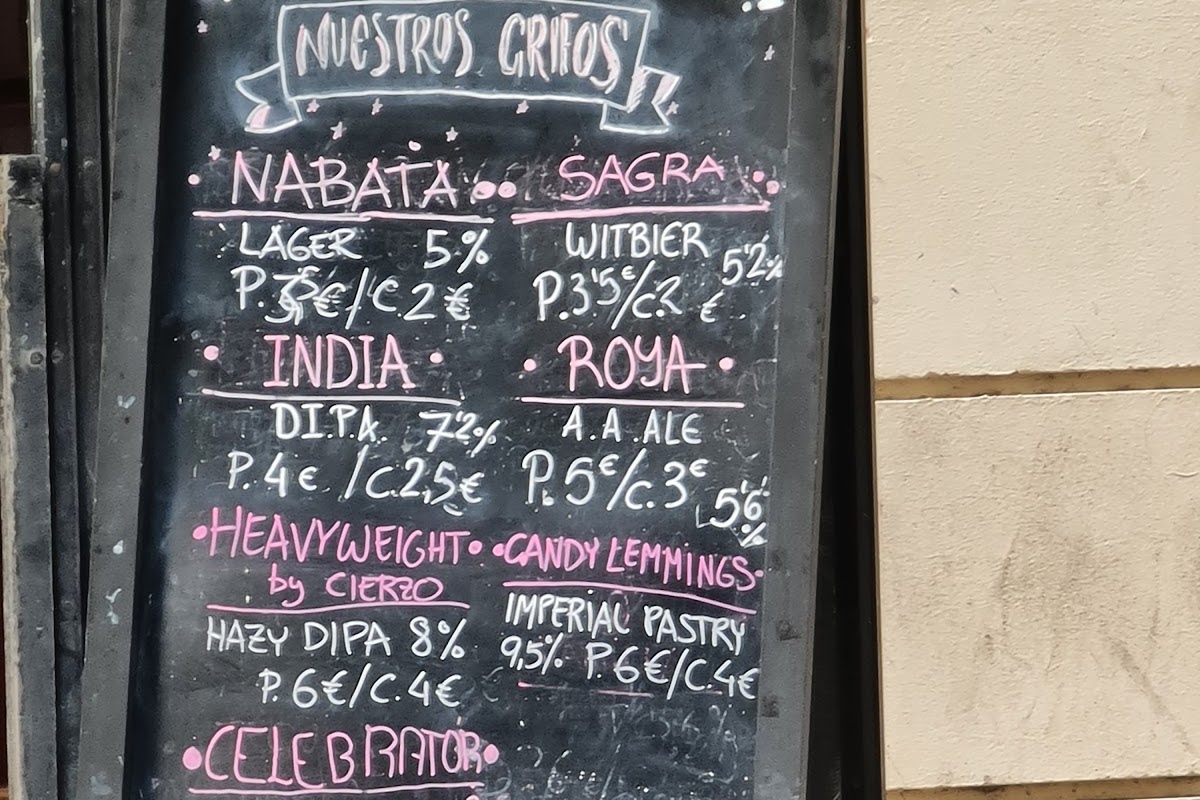 NUESTROS GRIFOS
NABATA
LAGER 5%
P. 3€/C. 2€
INDIA
D.I.P.A. 7'2%
P. 4€ /C. 2,5€
HEAVYWEIGHT
by CIERZO
HAZY DIPA 8%
P. 6€/C. 4€
CELEBRATOR
SAGRA
WITBIER 5'2%
P. 3'5€/C. 2€
ROYA
A.A. ALE
P. 5€/C. 3€
5'6%
CANDY LEMMINGS
IMPERIAL PASTRY
9,5% P. 6€/C. 4€